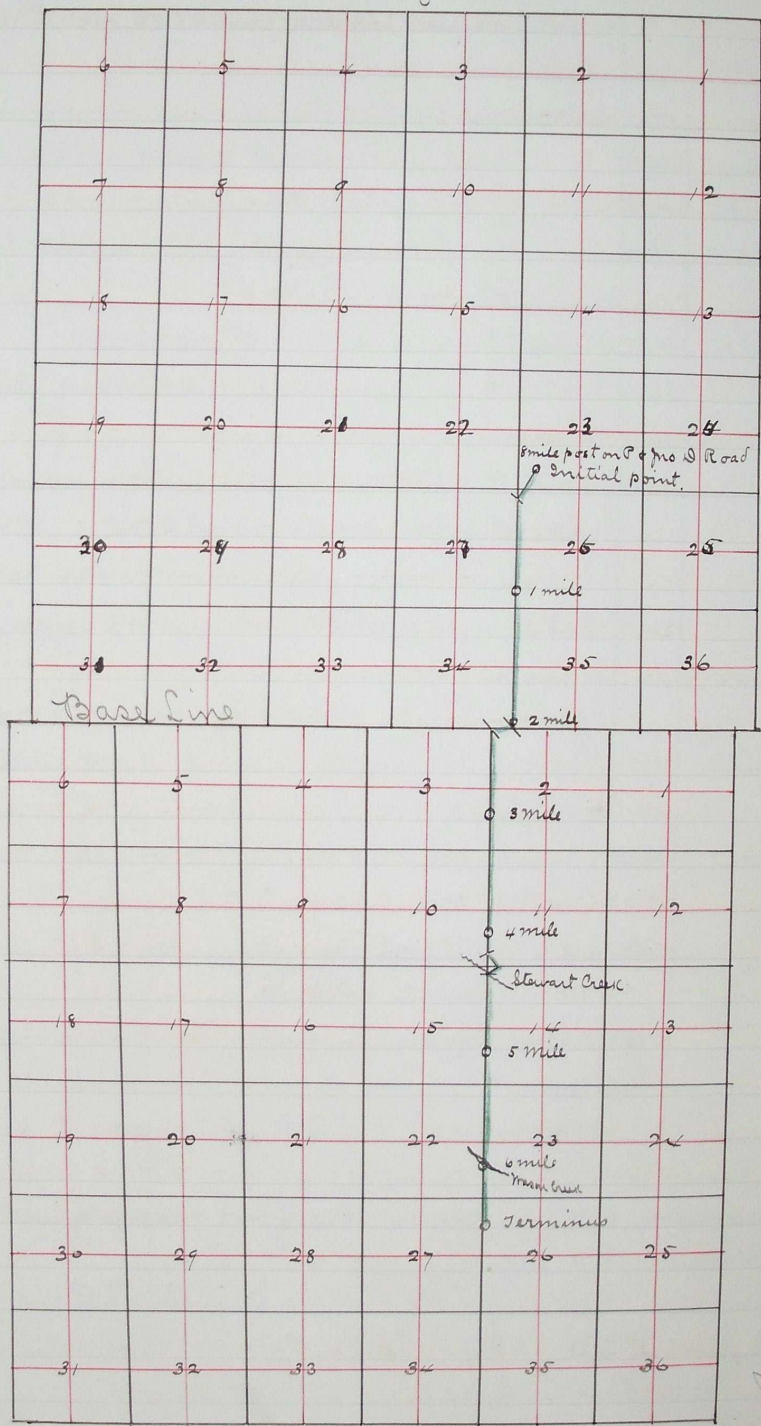 6 5 4 3 2 1
7 8 9 10 11 12
18 17 16 15 14 13
19 20 21 22 23 24
8 mile post on P & D Road
Initial point.
30 29 28 27 26 25
1 mile
31 32 33 34 35 36
Base Line
2 mile
6 5 4 3 2 1
3 mile
7 8 9 10 11 12
4 mile
Stewart Creek
18 17 16 15 14 13
5 mile
19 20 21 22 23 24
6 mile
Creek
Terminus
30 29 28 27 26 25
31 32 33 34 35 36